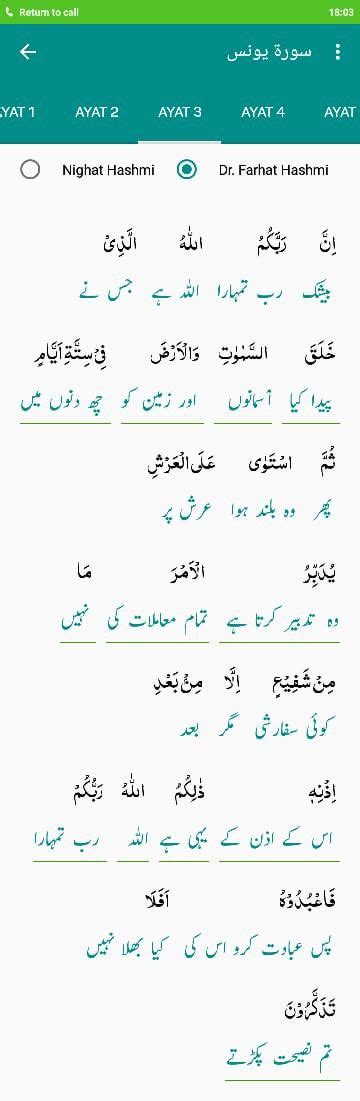 Return to call 18:03
سورة يونس
YAT 1 AYAT 2 AYAT 3 AYAT 4 AYAT
Nighat Hashmi Dr. Farhat Hashmi
اِنَّ رَبَّكُمُ اللّٰهُ الَّذِىْ
بیشک رب تمہارا اللہ ہے جس نے
خَلَقَ السَّمٰوٰتِ وَالْاَرْضَ فِىْ سِتَّةِ اَيَّامٍ
پیدا کیا آسمانوں اور زمین کو چھ دنوں میں
ثُمَّ اسْتَوٰى عَلَى الْعَرْشِ
پھر وہ بلند ہوا عرش پر
يُدَبِّرُ الْاَمْرَ مَا
وہ تدبیر کرتا ہے تمام معاملات کی نہیں
مِنْ شَفِيْعٍ اِلَّا مِنْۢ بَعْدِ
کوئی سفارشی مگر بعد
اِذْنِهٖ ذٰلِكُمُ اللّٰهُ رَبُّكُمْ
اس کے اذن کے یہی ہے اللہ رب تمہارا
فَاعْبُدُوْهُ اَفَلَا
پس عبادت کرو اس کی کیا بھلا نہیں
تَذَكَّرُوْنَ
تم نصیحت پکڑتے